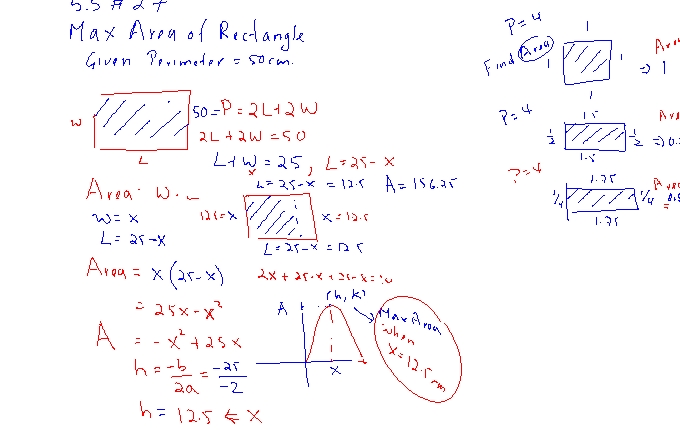 5.5 # 27
Max Area of Rectangle
Given Perimeter = 50 cm.
W
L
50 = P = 2L + 2W
2L + 2W = 50
L + W = 25, L = 25 - x
x
L = 25 - x = 12.5 A = 156.25
Area = W · L
W = x
L = 25 - x
12.5 = x
x = 12.5
L = 25 - x = 12.5
Area = x (25 - x)
2x + 25 - x + 25 - x = 50
= 25x - x²
A = -x² + 25x
h = -b/2a = -25/-2
h = 12.5 ← x
A
(h, k)
x
Max Area
when
x = 12.5 cm
P = 4
Find Area
1
1
1
1
⇒ 1
P = 4
1.5
1/2
1/2
1.5
P = 4
1.75
1/4
1/4
1.75